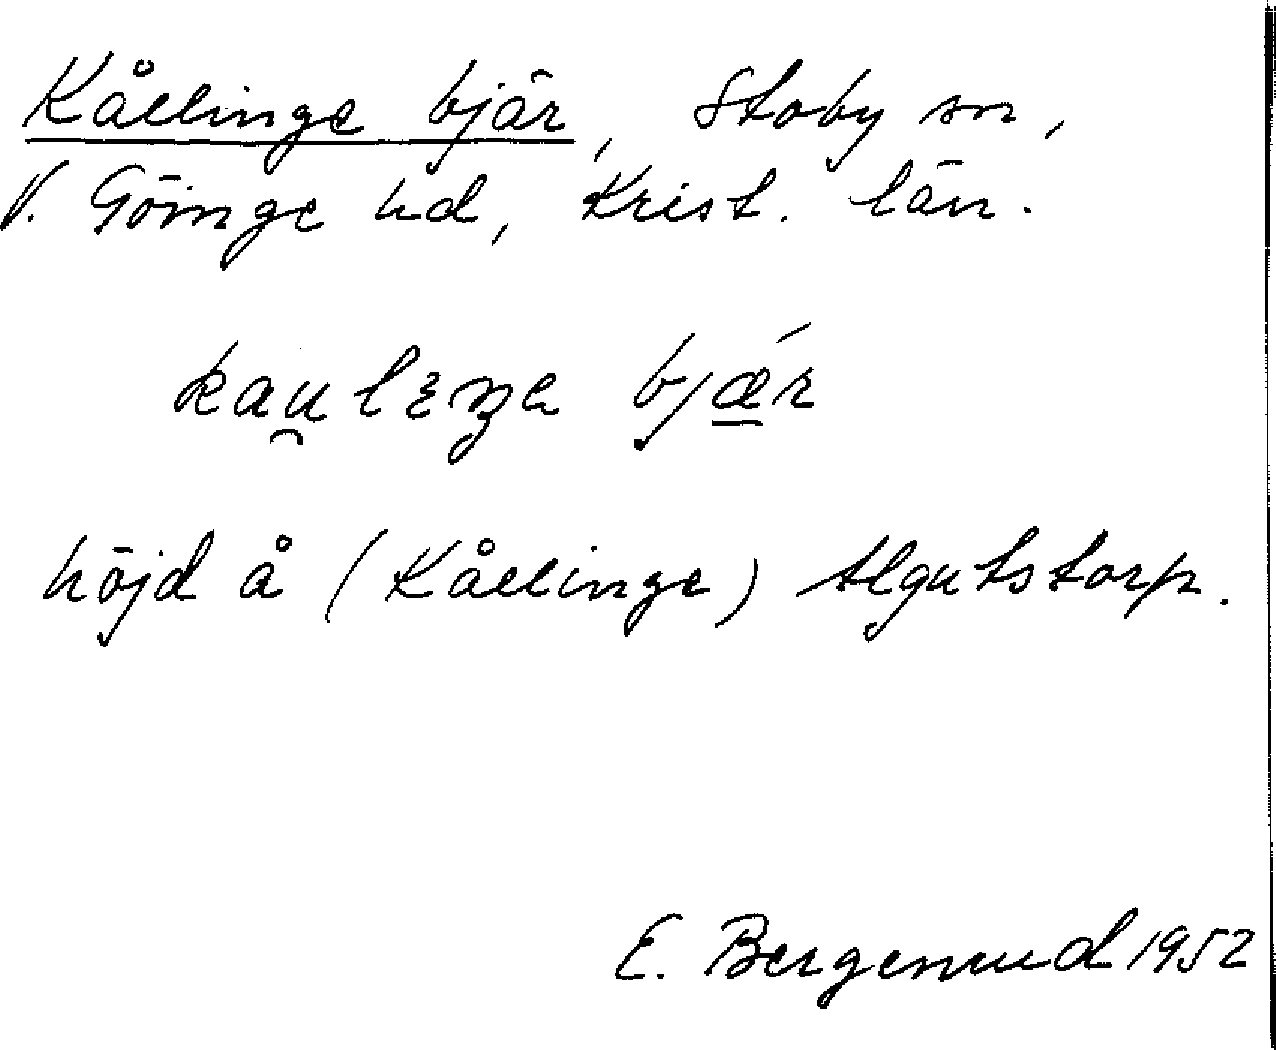 Kållinge bjär, Stoby sn,
V. Göinge hd, Krist. län.
kau̯lɛŋa bjǽ̲r
höjd å (Kållinge) Algutstorp.
E. Bergenrud 1952